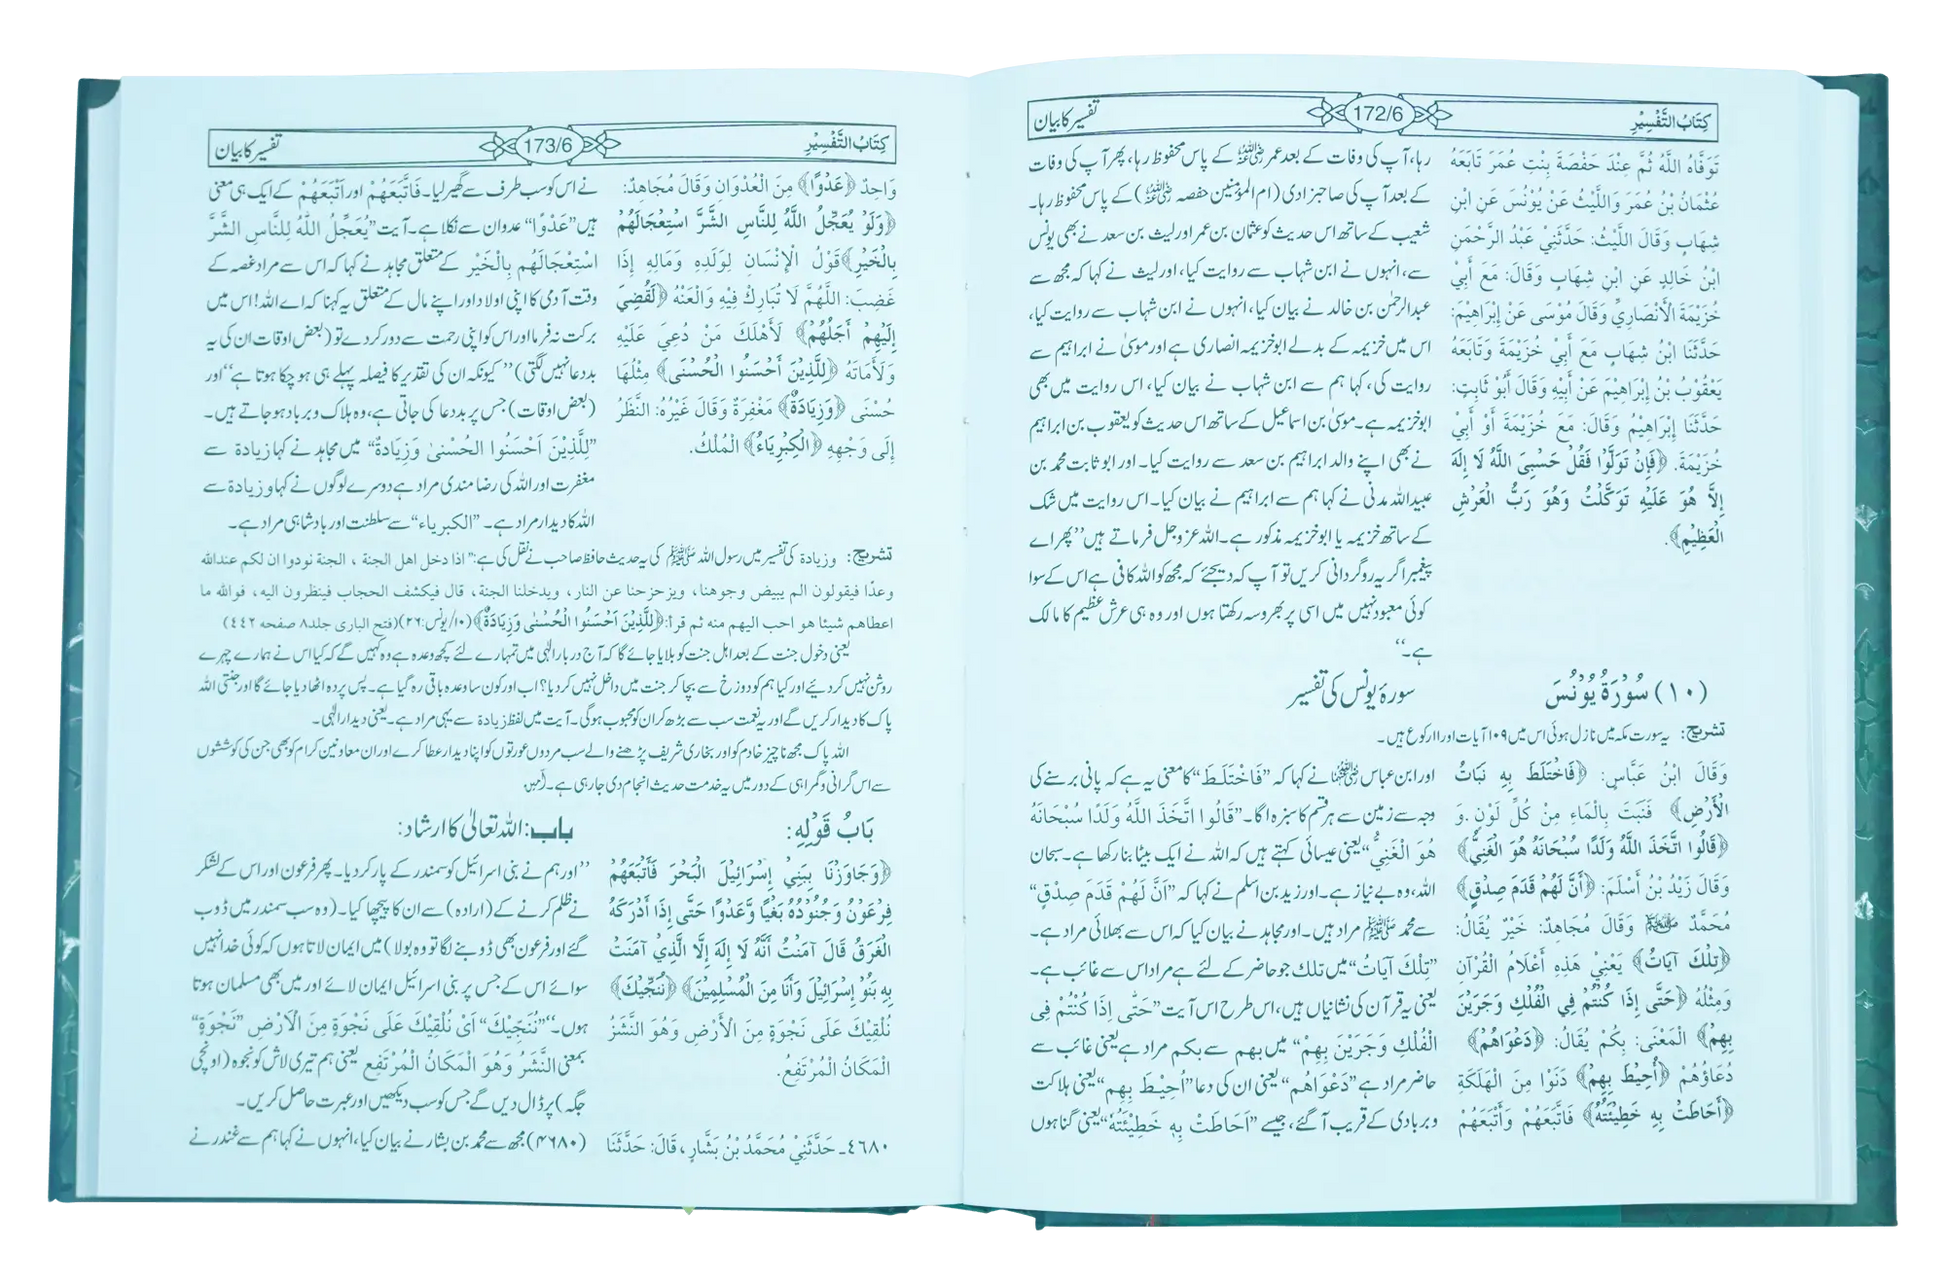 كِتَابُ التَّفْسِيْرِ 172/6 تفسیر کا بیان
تَوَفَّاهُ اللَّهُ ثُمَّ عِنْدَ حَفْصَةَ بِنْتِ عُمَرَ تَابَعَهُ
عُثْمَانُ بْنُ عُمَرَ وَاللَّيْثُ عَنْ يُوْنُسَ عَنِ ابْنِ
شِهَابٍ وَقَالَ اللَّيْثُ: حَدَّثَنِيْ عَبْدُ الرَّحْمَنِ
ابْنُ خَالِدٍ عَنِ ابْنِ شِهَابٍ وَقَالَ: مَعَ أَبِيْ
خُزَيْمَةَ الْأَنْصَارِيِّ وَقَالَ مُوْسَى عَنْ إِبْرَاهِيْمَ:
حَدَّثَنَا ابْنُ شِهَابٍ مَعَ أَبِيْ خُزَيْمَةَ وَتَابَعَهُ
يَعْقُوْبُ بْنُ إِبْرَاهِيْمَ عَنْ أَبِيْهِ وَقَالَ أَبُوْ ثَابِتٍ:
حَدَّثَنَا إِبْرَاهِيْمُ وَقَالَ: مَعَ خُزَيْمَةَ أَوْ أَبِيْ
خُزَيْمَةَ. ﴿فَإِنْ تَوَلَّوْا فَقُلْ حَسْبِيَ اللَّهُ لَا إِلَهَ
إِلَّا هُوَ عَلَيْهِ تَوَكَّلْتُ وَهُوَ رَبُّ الْعَرْشِ
الْعَظِيْمِ﴾.
رہا، آپ کی وفات کے بعد عمر رضی اللہ عنہ کے پاس محفوظ رہا، پھر آپ کی وفات
کے بعد آپ کی صاحبزادی (ام المؤمنین حفصہ رضی اللہ عنہا) کے پاس محفوظ رہا۔
شعیب کے ساتھ اس حدیث کو عثمان بن عمر اور لیث بن سعد نے بھی یونس
سے، انہوں نے ابن شہاب سے روایت کیا، اور لیث نے کہا کہ مجھ سے
عبدالرحمٰن بن خالد نے بیان کیا، انہوں نے ابن شہاب سے روایت کیا،
اس میں خزیمہ کے بدلے ابوخزیمہ انصاری ہے اور موسیٰ نے ابراہیم سے
روایت کی، کہا ہم سے ابن شہاب نے بیان کیا، اس روایت میں بھی
ابوخزیمہ ہے۔ موسیٰ بن اسماعیل کے ساتھ اس حدیث کو یعقوب بن ابراہیم
نے بھی اپنے والد ابراہیم بن سعد سے روایت کیا۔ اور ابو ثابت محمد بن
عبیداللہ مدنی نے کہا ہم سے ابراہیم نے بیان کیا۔ اس روایت میں شک
کے ساتھ خزیمہ یا ابوخزیمہ مذکور ہے۔ اللہ عزوجل فرماتے ہیں ”پھر اے
پیغمبر اگر یہ روگردانی کریں تو آپ کہ دیجئے کہ مجھ کو اللہ کافی ہے اس کے سوا
کوئی معبود نہیں میں اسی پر بھروسہ رکھتا ہوں اور وہ ہی عرش عظیم کا مالک
ہے۔“
(١٠) سُوْرَةُ يُوْنُسَ سورۂ یونس کی تفسیر
تشریح: یہ سورت مکہ میں نازل ہوئی اس میں ۱۰۹ آیات اور ۱۱ رکوع ہیں۔
وَقَالَ ابْنُ عَبَّاسٍ: ﴿فَاخْتَلَطَ بِهِ نَبَاتُ
الْأَرْضِ﴾ فَنَبَتَ بِالْمَاءِ مِنْ كُلِّ لَوْنٍ. وَ
﴿قَالُوا اتَّخَذَ اللَّهُ وَلَدًا سُبْحَانَهُ هُوَ الْغَنِيُّ﴾
وَقَالَ زَيْدُ بْنُ أَسْلَمَ: ﴿أَنَّ لَهُمْ قَدَمَ صِدْقٍ﴾
مُحَمَّدٌ ﷺ وَقَالَ مُجَاهِدٌ: خَيْرٌ يُقَالُ:
﴿تِلْكَ آيَاتُ﴾ يَعْنِيْ هَذِهِ أَعْلَامُ الْقُرْآنِ
وَمِثْلُهُ ﴿حَتَّى إِذَا كُنْتُمْ فِي الْفُلْكِ وَجَرَيْنَ
بِهِمْ﴾ الْمَعْنَى: بِكُمْ يُقَالُ: ﴿دَعْوَاهُمْ﴾
دُعَاؤُهُمْ ﴿أُحِيْطَ بِهِمْ﴾ دَنَوْا مِنَ الْهَلَكَةِ
﴿أَحَاطَتْ بِهِ خَطِيْئَتُهُ﴾ فَاتَّبَعَهُمْ وَأَتْبَعَهُمْ
اور ابن عباس رضی اللہ عنہما نے کہا کہ ”فَاخْتَلَطَ“ کا معنی یہ ہے کہ پانی برسنے کی
وجہ سے زمین سے ہر قسم کا سبزہ اگا۔ ”قَالُوا اتَّخَذَ اللَّهُ وَلَدًا سُبْحَانَهُ
هُوَ الْغَنِيُّ“ یعنی عیسائی کہتے ہیں کہ اللہ نے ایک بیٹا بنا رکھا ہے۔ سبحان
اللہ، وہ بے نیاز ہے۔ اور زید بن اسلم نے کہا کہ ”اَنَّ لَهُمْ قَدَمَ صِدْقٍ“
سے محمد ﷺ مراد ہیں۔ اور مجاہد نے بیان کیا کہ اس سے بھلائی مراد ہے۔
”تِلْكَ آيَاتُ“ میں تلك جو حاضر کے لئے ہے مراد اس سے غائب ہے۔
یعنی یہ قرآن کی نشانیاں ہیں، اس طرح اس آیت ”حَتَّى اِذَا كُنْتُمْ فِى
الْفُلْكِ وَجَرَيْنَ بِهِمْ“ میں بهم سے بكم مراد ہے یعنی غائب سے
حاضر مراد ہے ”دَعْوَاهُم“ یعنی ان کی دعا ”اُحِيْطَ بِهِم“ یعنی ہلاکت
و بربادی کے قریب آ گئے، جیسے ”اَحَاطَتْ بِهٖ خَطِيْئَتُهٗ“ یعنی گناہوں
كِتَابُ التَّفْسِيْرِ 173/6 تفسیر کا بیان
وَاحِدٌ ﴿عَدْوًا﴾ مِنَ الْعُدْوَانِ وَقَالَ مُجَاهِدٌ:
﴿وَلَوْ يُعَجِّلُ اللَّهُ لِلنَّاسِ الشَّرَّ اسْتِعْجَالَهُمْ
بِالْخَيْرِ﴾ قَوْلُ الْإِنْسَانِ لِوَلَدِهِ وَمَالِهِ إِذَا
غَضِبَ: اللَّهُمَّ لَا تُبَارِكْ فِيْهِ وَالْعَنْهُ ﴿لَقُضِيَ
إِلَيْهِمْ أَجَلُهُمْ﴾ لَأَهْلَكَ مَنْ دُعِيَ عَلَيْهِ
وَلَأَمَاتَهُ ﴿لِلَّذِيْنَ أَحْسَنُوا الْحُسْنَى﴾ مِثْلُهَا
حُسْنَى ﴿وَزِيَادَةٌ﴾ مَغْفِرَةٌ وَقَالَ غَيْرُهُ: النَّظَرُ
إِلَى وَجْهِهِ ﴿الْكِبْرِيَاءُ﴾ الْمُلْكُ.
نے اس کو سب طرف سے گھیر لیا۔ فَاتَّبَعَهُمْ اور اَتْبَعَهُمْ کے ایک ہی معنی
ہیں ”عَدْوًا“ عدوان سے نکلا ہے۔ آیت ”يُعَجِّلُ اللَّهُ لِلنَّاسِ الشَّرَّ
اسْتِعْجَالَهُم بِالْخَيْر کے متعلق مجاہد نے کہا کہ اس سے مراد غصہ کے
وقت آدمی کا اپنی اولاد اور اپنے مال کے متعلق یہ کہنا کہ اے اللہ! اس میں
برکت نہ فرما اور اس کو اپنی رحمت سے دور کر دے تو (بعض اوقات ان کی یہ
بددعا نہیں لگتی)“ کیونکہ ان کی تقدیر کا فیصلہ پہلے ہی ہو چکا ہوتا ہے“ اور
(بعض اوقات) جس پر بددعا کی جاتی ہے، وہ ہلاک و برباد ہو جاتے ہیں۔
”لِلَّذِيْنَ اَحْسَنُوا الْحُسْنىٰ وَزِيَادَةٌ“ میں مجاہد نے کہا زیادة سے
مغفرت اور اللہ کی رضا مندی مراد ہے دوسرے لوگوں نے کہا وزیادة سے
اللہ کا دیدار مراد ہے۔ ”الكبرياء“ سے سلطنت اور بادشاہی مراد ہے۔
تشریح: وزیادة کی تفسیر میں رسول اللہ ﷺ کی یہ حدیث حافظ صاحب نے نقل کی ہے: ”اذا دخل اهل الجنة ، الجنة نودوا ان لكم عندالله
وعدًا فيقولون الم يبيض وجوهنا، ويزحزحنا عن النار، ويدخلنا الجنة، قال فيكشف الحجاب فينظرون اليه، فوالله ما
اعطاهم شيئا هو احب اليهم منه ثم قرأ: ﴿لِلَّذِيْنَ اَحْسَنُوا الْحُسْنٰى وَزِيَادَةٌ﴾ (۱۰/یونس:۲۶) (فتح الباری جلد ۸ صفحہ ۴۴۲)
یعنی دخول جنت کے بعد اہل جنت کو بلایا جائے گا کہ آج دربار الٰہی میں تمہارے لئے کچھ وعدہ ہے وہ کہیں گے کہ کیا اس نے ہمارے چہرے
روشن نہیں کر دیئے اور کیا ہم کو دوزخ سے بچا کر جنت میں داخل نہیں کر دیا؟ اب اور کون سا وعدہ باقی رہ گیا ہے۔ پس پردہ اٹھا دیا جائے گا اور جنتی اللہ
پاک کا دیدار کریں گے اور یہ نعمت سب سے بڑھ کر ان کو محبوب ہوگی۔ آیت میں لفظ زیادة سے یہی مراد ہے۔ یعنی دیدار الٰہی۔
اللہ پاک مجھ ناچیز خادم کو اور بخاری شریف پڑھنے والے سب مردوں عورتوں کو اپنا دیدار عطا کرے اور ان معاونین کرام کو بھی جن کی کوششوں
سے اس گرانی و گمراہی کے دور میں یہ خدمت حدیث انجام دی جا رہی ہے۔ آمین
بَابُ قَوْلِهِ: باب: اللہ تعالیٰ کا ارشاد:
﴿وَجَاوَزْنَا بِبَنِيْ إِسْرَائِيْلَ الْبَحْرَ فَأَتْبَعَهُمْ
فِرْعَوْنُ وَجُنُوْدُهُ بَغْيًا وَّعَدْوًا حَتَّى إِذَا أَدْرَكَهُ
الْغَرَقُ قَالَ آمَنْتُ أَنَّهُ لَا إِلَهَ إِلَّا الَّذِيْ آمَنَتْ
بِهِ بَنُوْ إِسْرَائِيْلَ وَأَنَا مِنَ الْمُسْلِمِيْنَ﴾ ﴿نُنَجِّيْكَ﴾
نُلْقِيْكَ عَلَى نَجْوَةٍ مِنَ الْأَرْضِ وَهُوَ النَّشَزُ
الْمَكَانُ الْمُرْتَفِعُ.
”اور ہم نے بنی اسرائیل کو سمندر کے پار کر دیا۔ پھر فرعون اور اس کے لشکر
نے ظلم کرنے کے (ارادہ) سے ان کا پیچھا کیا۔ (وہ سب سمندر میں ڈوب
گئے اور فرعون بھی ڈوبنے لگا تو وہ بولا) میں ایمان لاتا ہوں کہ کوئی خدا نہیں
سوائے اس کے جس پر بنی اسرائیل ایمان لائے اور میں بھی مسلمان ہوتا
ہوں۔“ ”نُنَجِّيْكَ“ اَىْ نُلْقِيْكَ عَلَى نَجْوَةٍ مِنَ الْاَرْضِ ”نَجْوَةٍ“
بمعنی النَّشَزُ وَهُوَ الْمَكَانُ الْمُرْتَفِع یعنی ہم تیری لاش کو نجوہ (اونچی
جگہ) پر ڈال دیں گے جس کو سب دیکھیں اور عبرت حاصل کریں۔
٤٦٨٠۔ حَدَّثَنِيْ مُحَمَّدُ بْنُ بَشَّارٍ، قَالَ: حَدَّثَنَا
(۴۶۸۰) مجھ سے محمد بن بشار نے بیان کیا، انہوں نے کہا ہم سے غندر نے